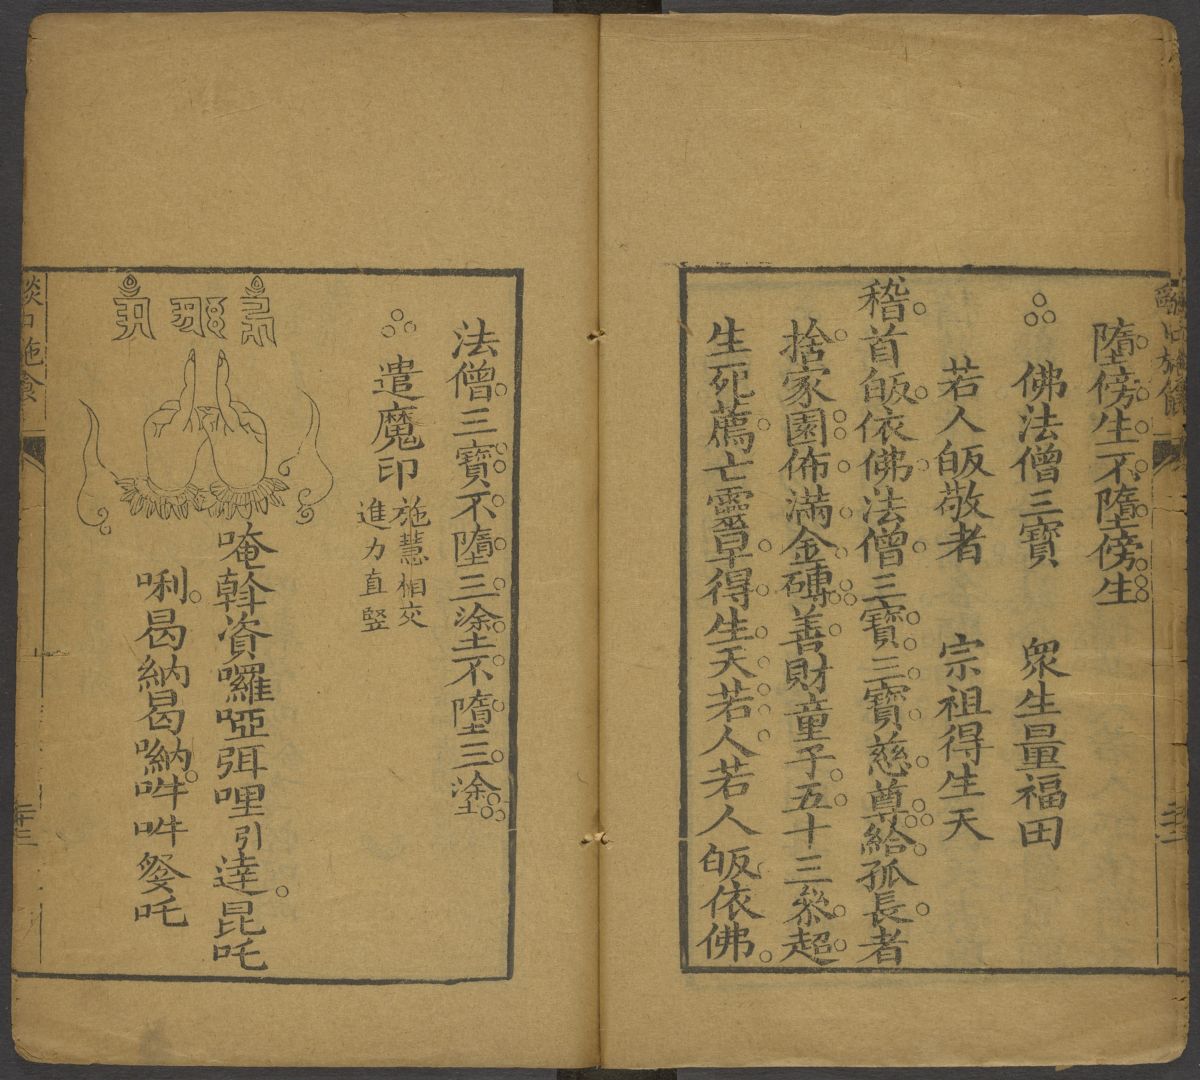 墮傍生不墮傍生
佛法僧三寶　衆生量福田
若人皈敬者　宗祖得生天
稽首皈依佛法僧三寶三寶慈尊給孤長者
捨家園佈滿金磚善財童子五十三叅超
生死薦亡靈早得生天若人若人皈依佛
法僧三寶不墮三塗不墮三塗
遣魔印
施慧相交
進力直竪
唵斡資囉啞弭哩引達昆吒
唎曷納曷嚩吽吽癹吒
燄口施食